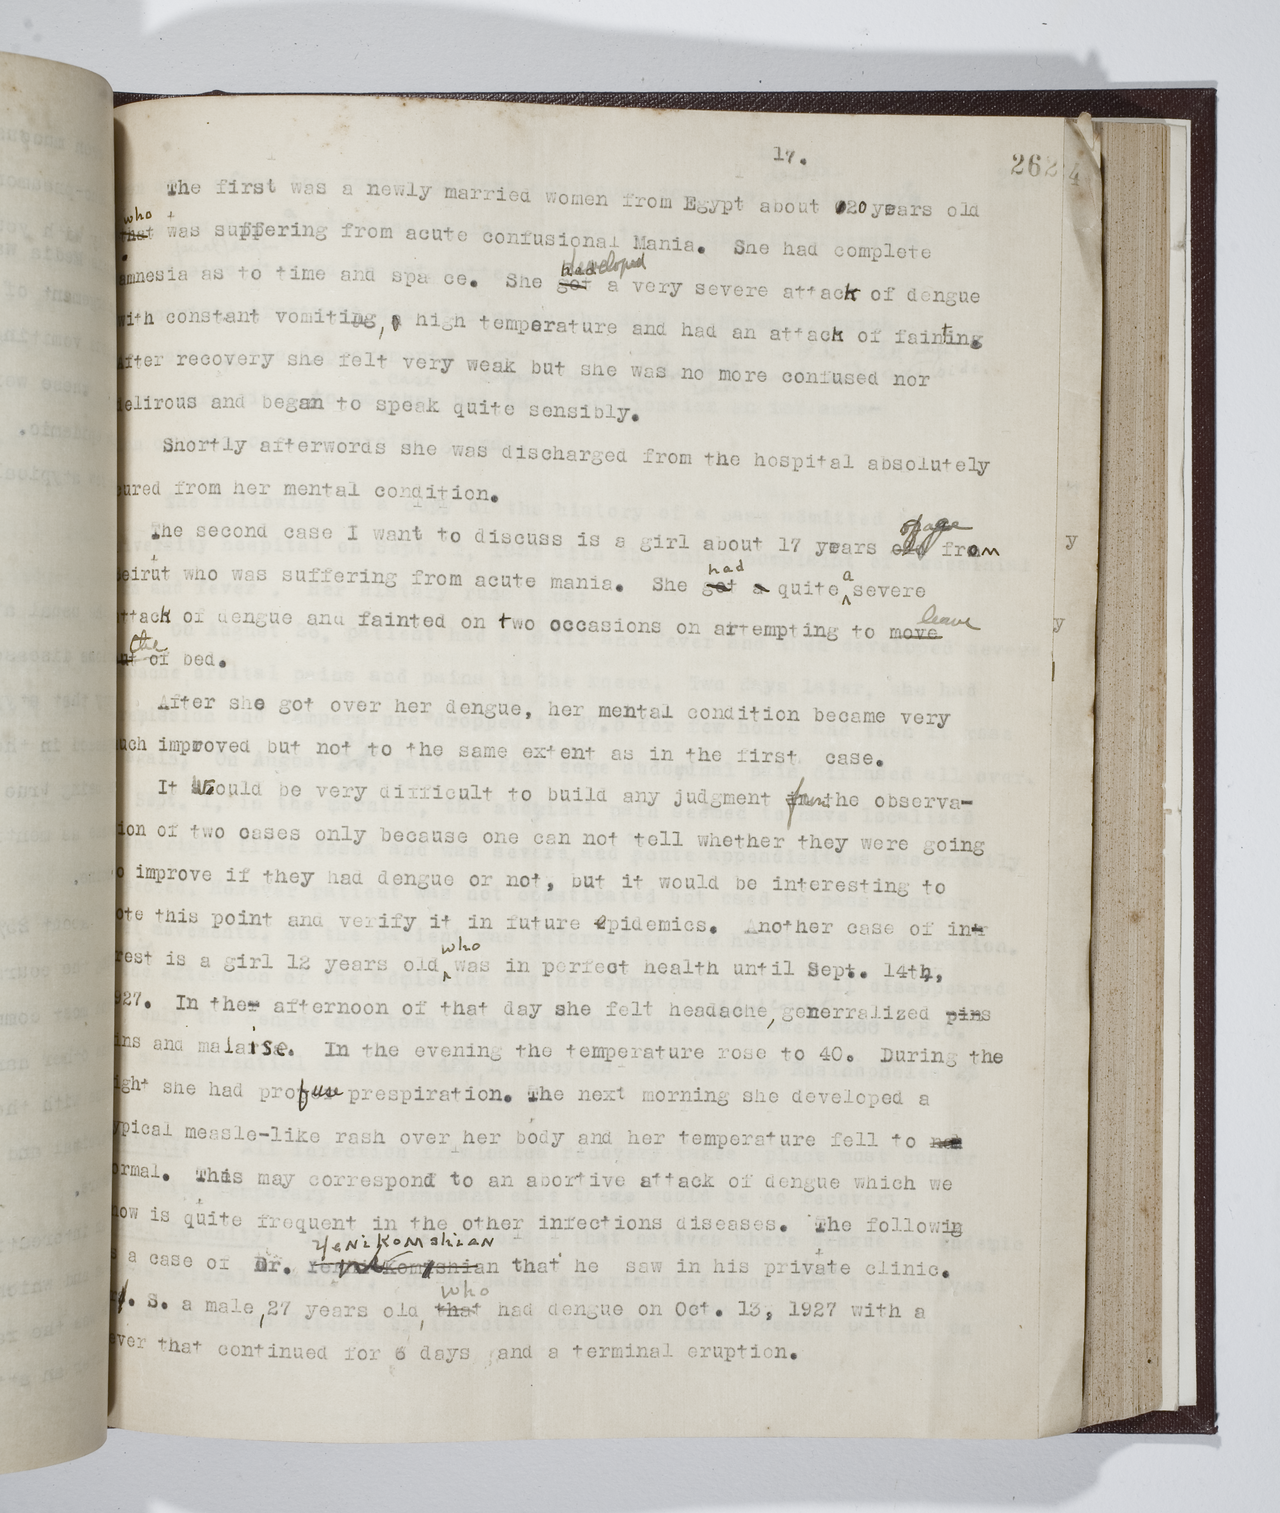 17.
262 4
The first was a newly married women from Egypt about 20 years old
who
that was suffering from acute confusional Mania. She had complete
developed
had
amnesia as to time and spa ce. She got a very severe attack of dengue
with constant vomiting, high temperature and had an attack of fainting
After recovery she felt very weak but she was no more confused nor
delirous and began to speak quite sensibly.
Shortly afterwords she was discharged from the hospital absolutely
cured from her mental condition.
of age
The second case I want to discuss is a girl about 17 years old from
y
had a
Beirut who was suffering from acute mania. She got a quite severe
leave
attack of dengue and fainted on two occasions on attempting to move
y
the
out of bed.
After she got over her dengue, her mental condition became very
much improved but not to the same extent as in the first case.
It would be very difficult to build any judgment from the observa-
tion of two cases only because one can not tell whether they were going
to improve if they had dengue or not, but it would be interesting to
note this point and verify it in future epidemics. Another case of int
who
rest is a girl 12 years old, was in perfect health until Sept. 14th,
1927. In the afternoon of that day she felt headache, generralized pins
ins and malaise. In the evening the temperature rose to 40. During the
night she had profuse prespiration. The next morning she developed a
typical messle-like rash over her body and her temperature fell to no
ormal. This may correspond to an abortive attack of dengue which we
know is quite frequent in the other infections diseases. The followig
Yenikomshian
is a case of Dr. that he saw in his private clinic.
who
S. a male, 27 years old, that had dengue on Oct. 13, 1927 with a
fever that continued for 6 days and a terminal eruption.